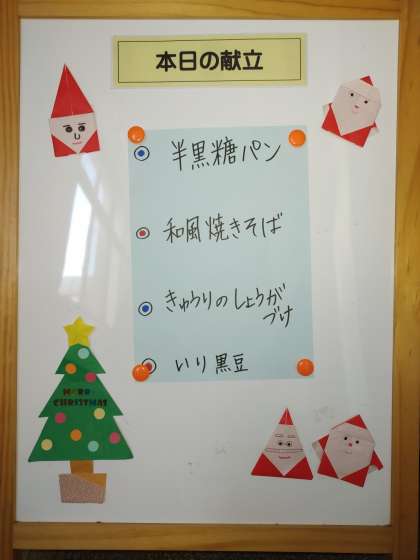 本日の献立
半黒糖パン
和風焼きそば
きゅうりのしょうが
づけ
いり黒豆
MERRY
CHRISTMAS